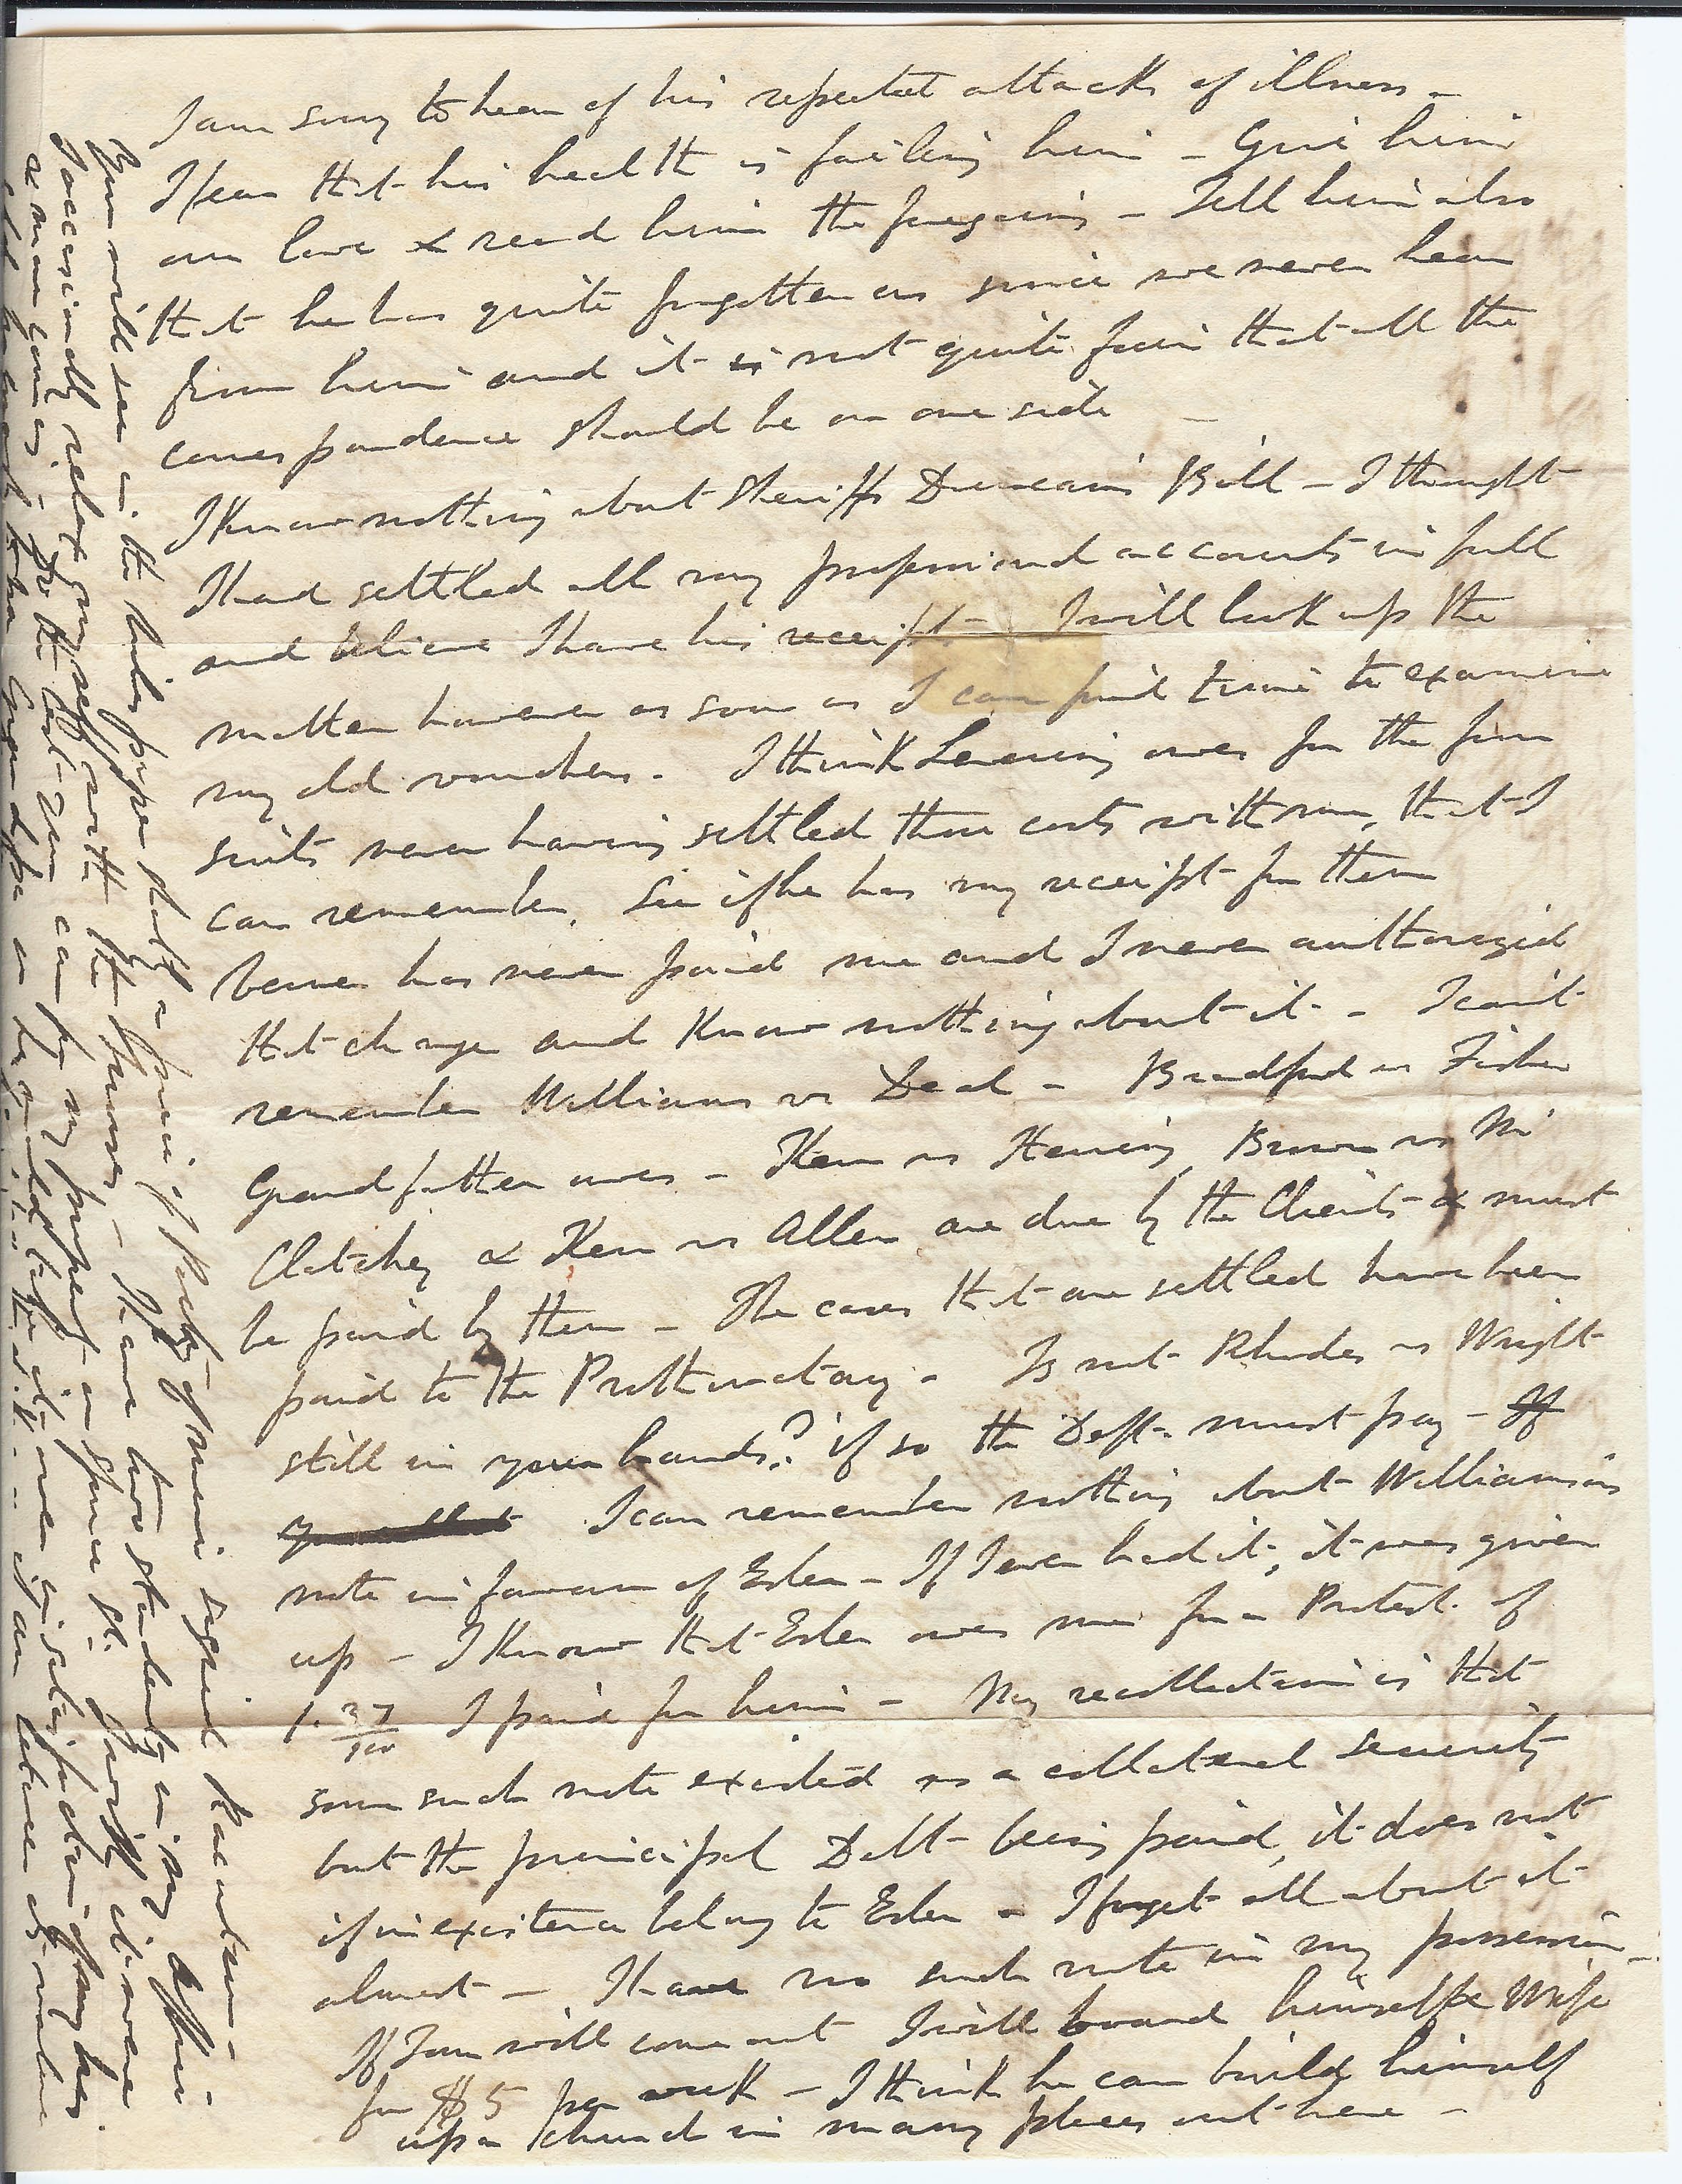 I am sorry to hear of his repeated attacks of illness -
I fear that his health is failing him - Give him
our love & read him the foregoing - Tell him also
that he has quite forgotten us since we never hear
from him and it is not quite fair that all the
correspondence should be on one side -
I know nothing about Sheriff Duncan's Bill - I thought
I had settled all my professional accounts in full
and believe I have his receipt - I will look up the
matter however as soon as I can find time to examine
my old vouchers - I think Levering owes for the four
suits never having settled those costs with me, that I
can remember. See if he has my receipt for them
has never paid me and I never authorized
that charge and know nothing about it - I can't
remember Williams vs Deal - Bradford vs Fisher
Grandfather owes - Kerr vs Hening, Brown vs Mc
Clatchey & Kerr vs Allen are due by the Clients & must
be paid by them - The cases that are settled have been
paid to the Prothonotary - Is not Rhodes vs Wright
still in your hands? if so the Deft. must pay - If
I can remember nothing about Williamson's
note in favour of Esler - If I ever had it, it was given
up - I know that Esler owes me for a Protest of
1.37/100 I paid for him - My recollection is that
some such note existed as a collateral security
but the principal Debt being paid, it does not
if in existence belong to Esler - I forget all about it
almost - I have no such note in my possession -
If Tom will come out I will board himself & Wife
for $5 per week - I think he can build himself
up a church in many places out here -
You will see in the bills paper a piece of poetry of mine signed
I occasionally relax myself with the Muses - We have two students in my office
& more coming - Do the best you can for my property on Spruce St. I wish it were